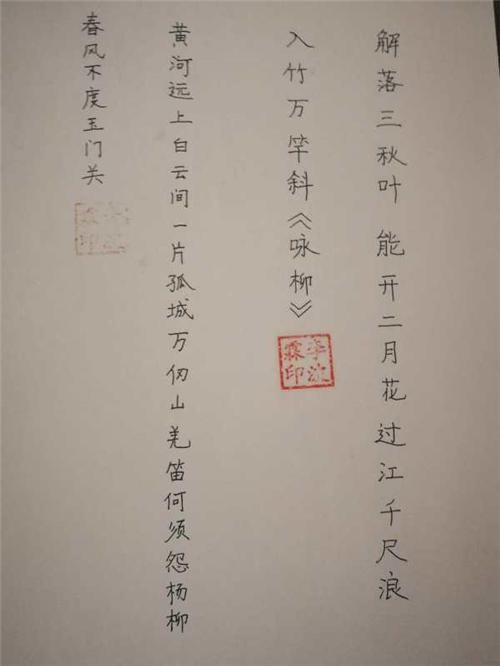 解落三秋叶 能开二月花过江千尺浪
入竹万竿斜《咏柳》
李
霖印
黄河远上白云间一片孤城万仞山羌笛何须怨杨柳
春风不度玉门关